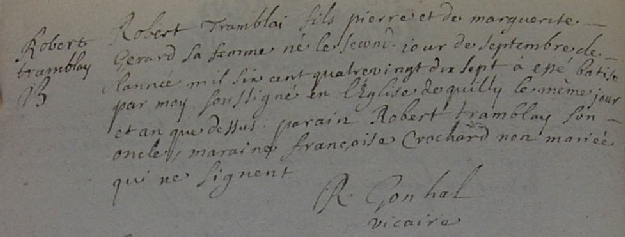 Robert
tramblay
B
Robert Tramblai fils pierre et de marguerite
Gerard sa femme né le second jour de septembre de
lannee mil six cent quatrevingt dix sept à esté batisé
par moy soussigné en l'Eglise de quilly le même jour
et an que dessus. parain Robert tramblay son
oncle, maraine françoise Crochard non mariée
qui ne signent
R. Gonhal
vicaire